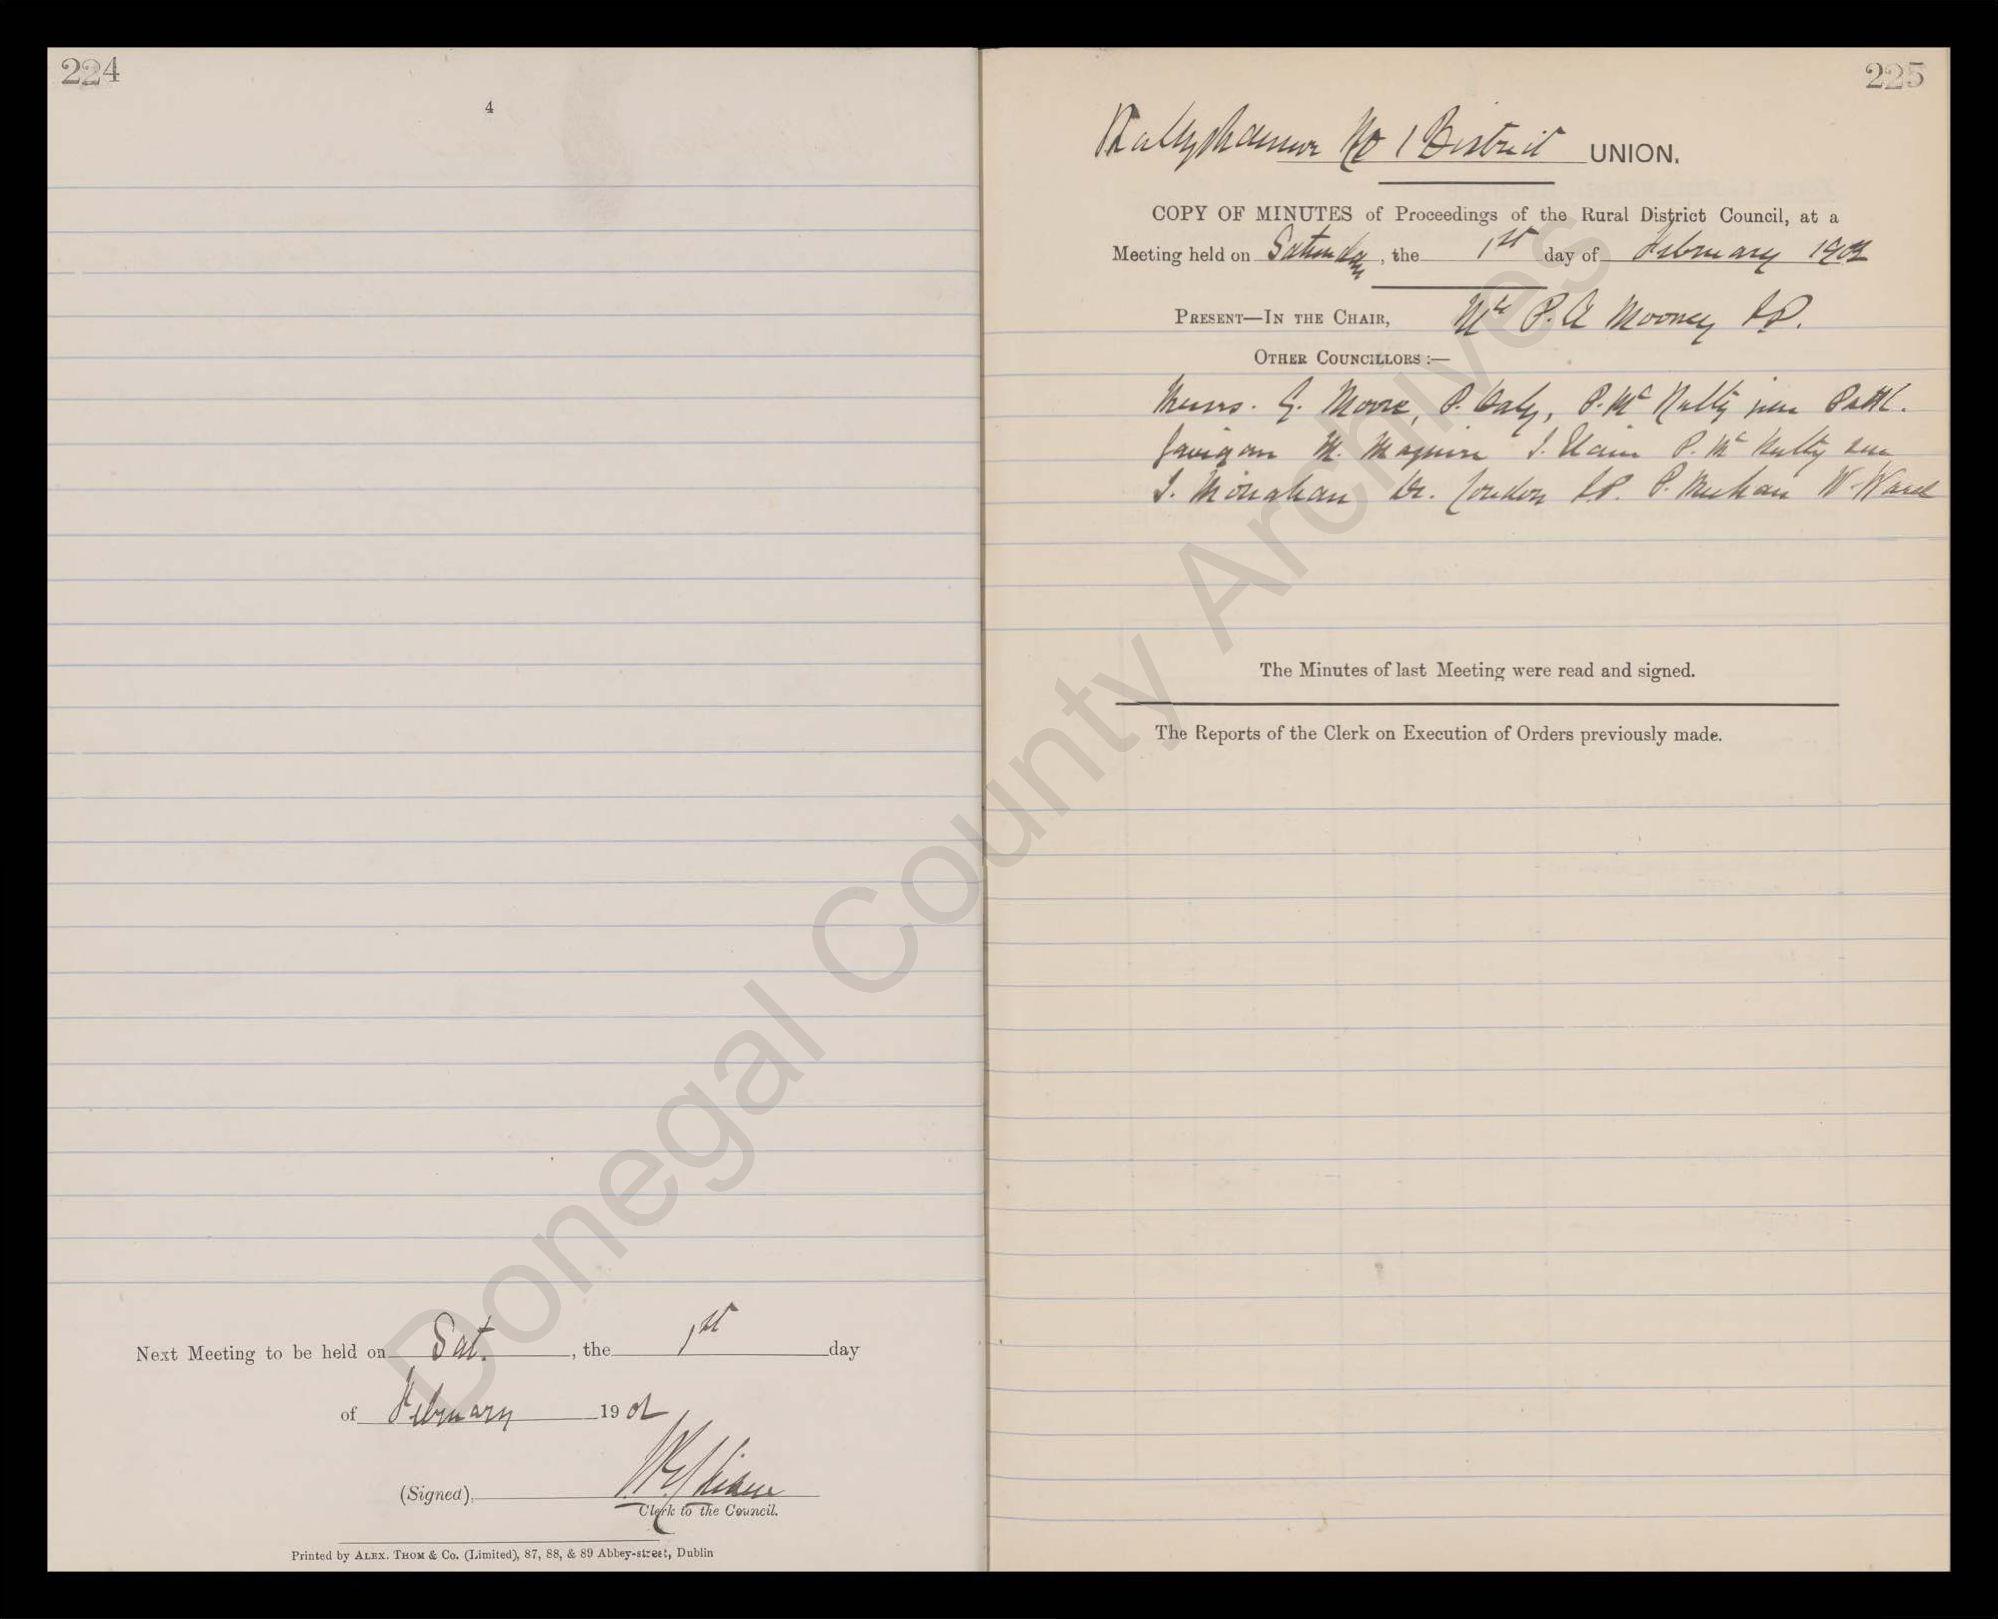 224
4
Next Meeting to be held on Sat. , the 1st day
of February 1902
(Signed),
Clerk to the Council.
Printed by ALEX. THOM & Co. (Limited), 87, 88, & 89 Abbey-street, Dublin
225
Ballyshannon No 1 District UNION.
COPY OF MINUTES of Proceedings of the Rural District Council, at a
Meeting held on Saturday, the 1st day of February 1902
PRESENT—IN THE CHAIR, Mr P. A Mooney J.P.
OTHER COUNCILLORS :—
Messrs. G. Moore, P. Daly, P. Mc Nulty jun Patk.
Gavigan M. Maguire J. P. Mc Nulty sen
J. Monahan Dr. Condon J.P. P. Meehan W. Ward
The Minutes of last Meeting were read and signed.
The Reports of the Clerk on Execution of Orders previously made.
Donegal County Archives